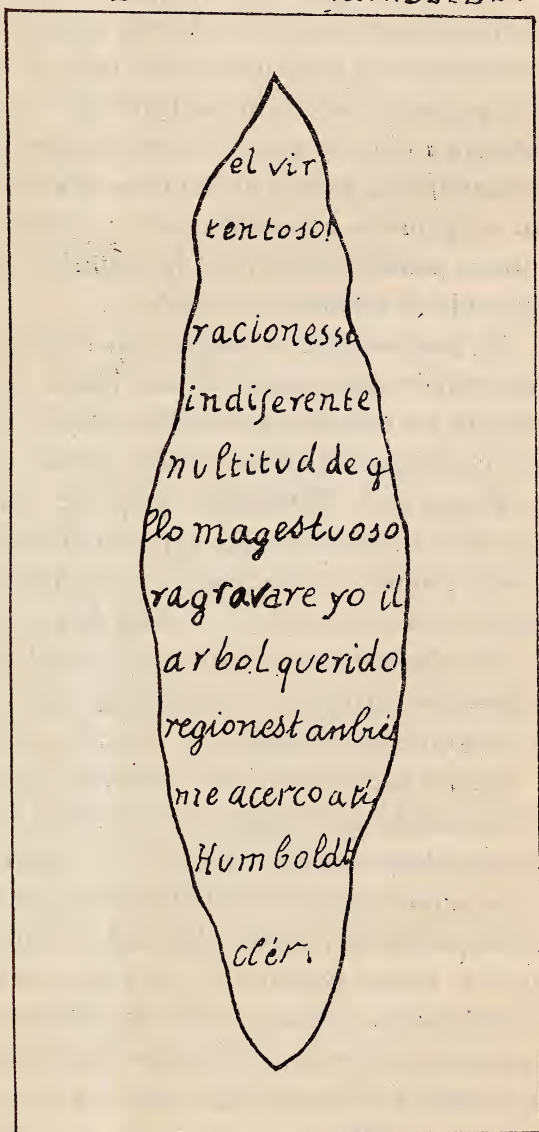 el vir
tentoso!
racionesso
indiferente
nultitud de q
llo magestuoso
ragravare yo il
arbol querido
regionest anbié
me acerco a tí
Humboldt
clér.